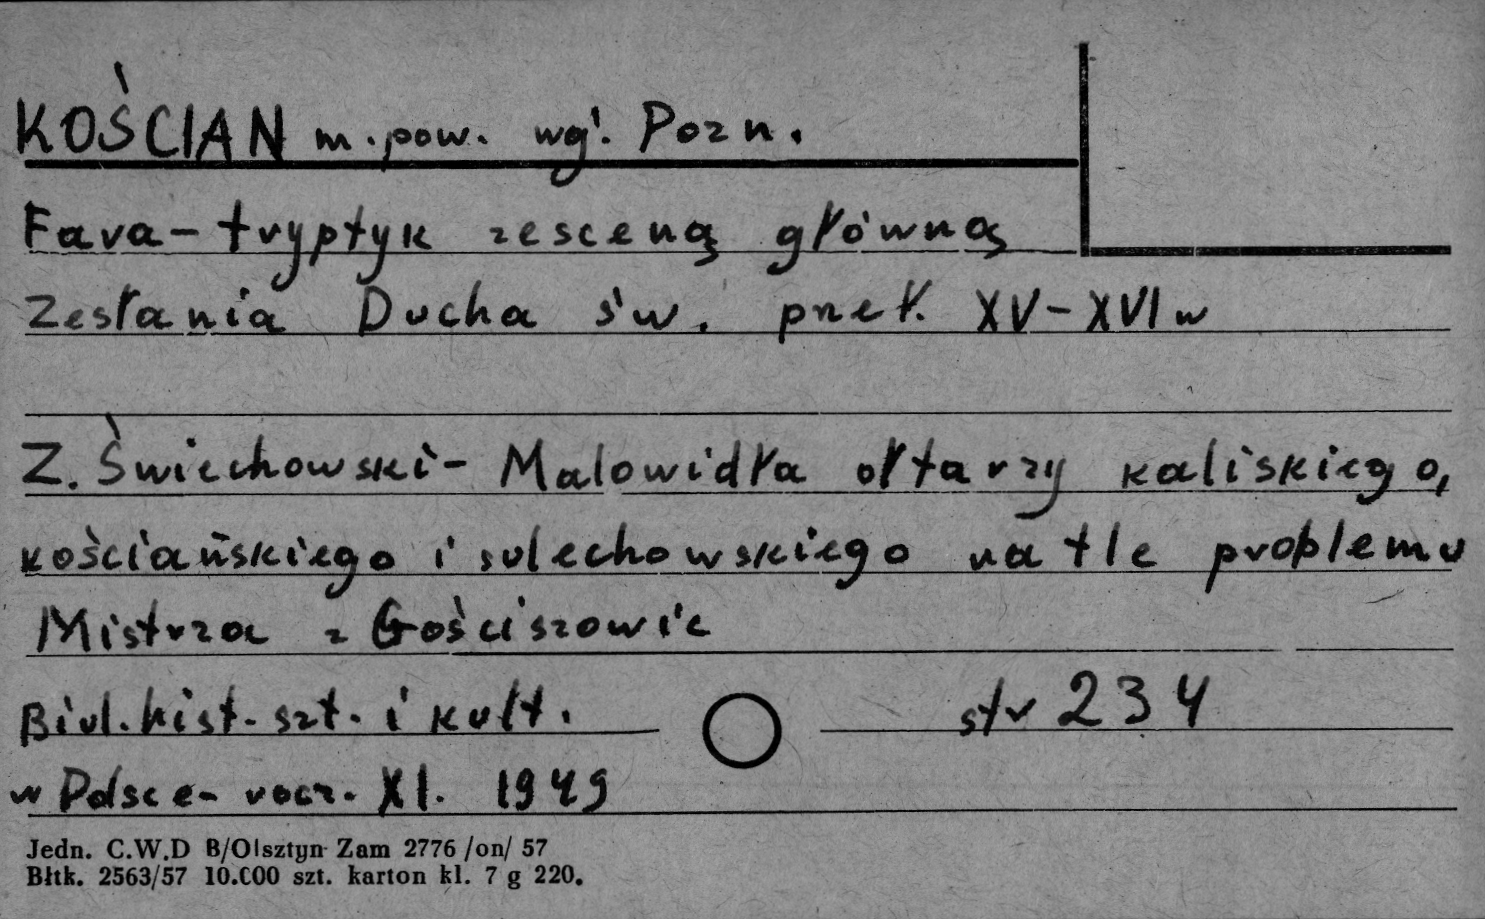 KOŚCIAN m. pow. wg'. Pozn.
Fara - tryptyk ze sceną główną
Zesłania Ducha św. przeł. XV-XVI w
Z. Świechowski - Malowidła ołtarzy kaliskiego,
kościańskiego i sulechowskiego na tle problemu
Mistrza z Gościszowic
Biul. hist. szt. i kult. str 234
w Polsce - rocz. XI. 1949
Jedn. C.W.D B/Olsztyn Zam 2776 /on/ 57
Błtk. 2563/57 10.000 szt. karton kl. 7 g 220.